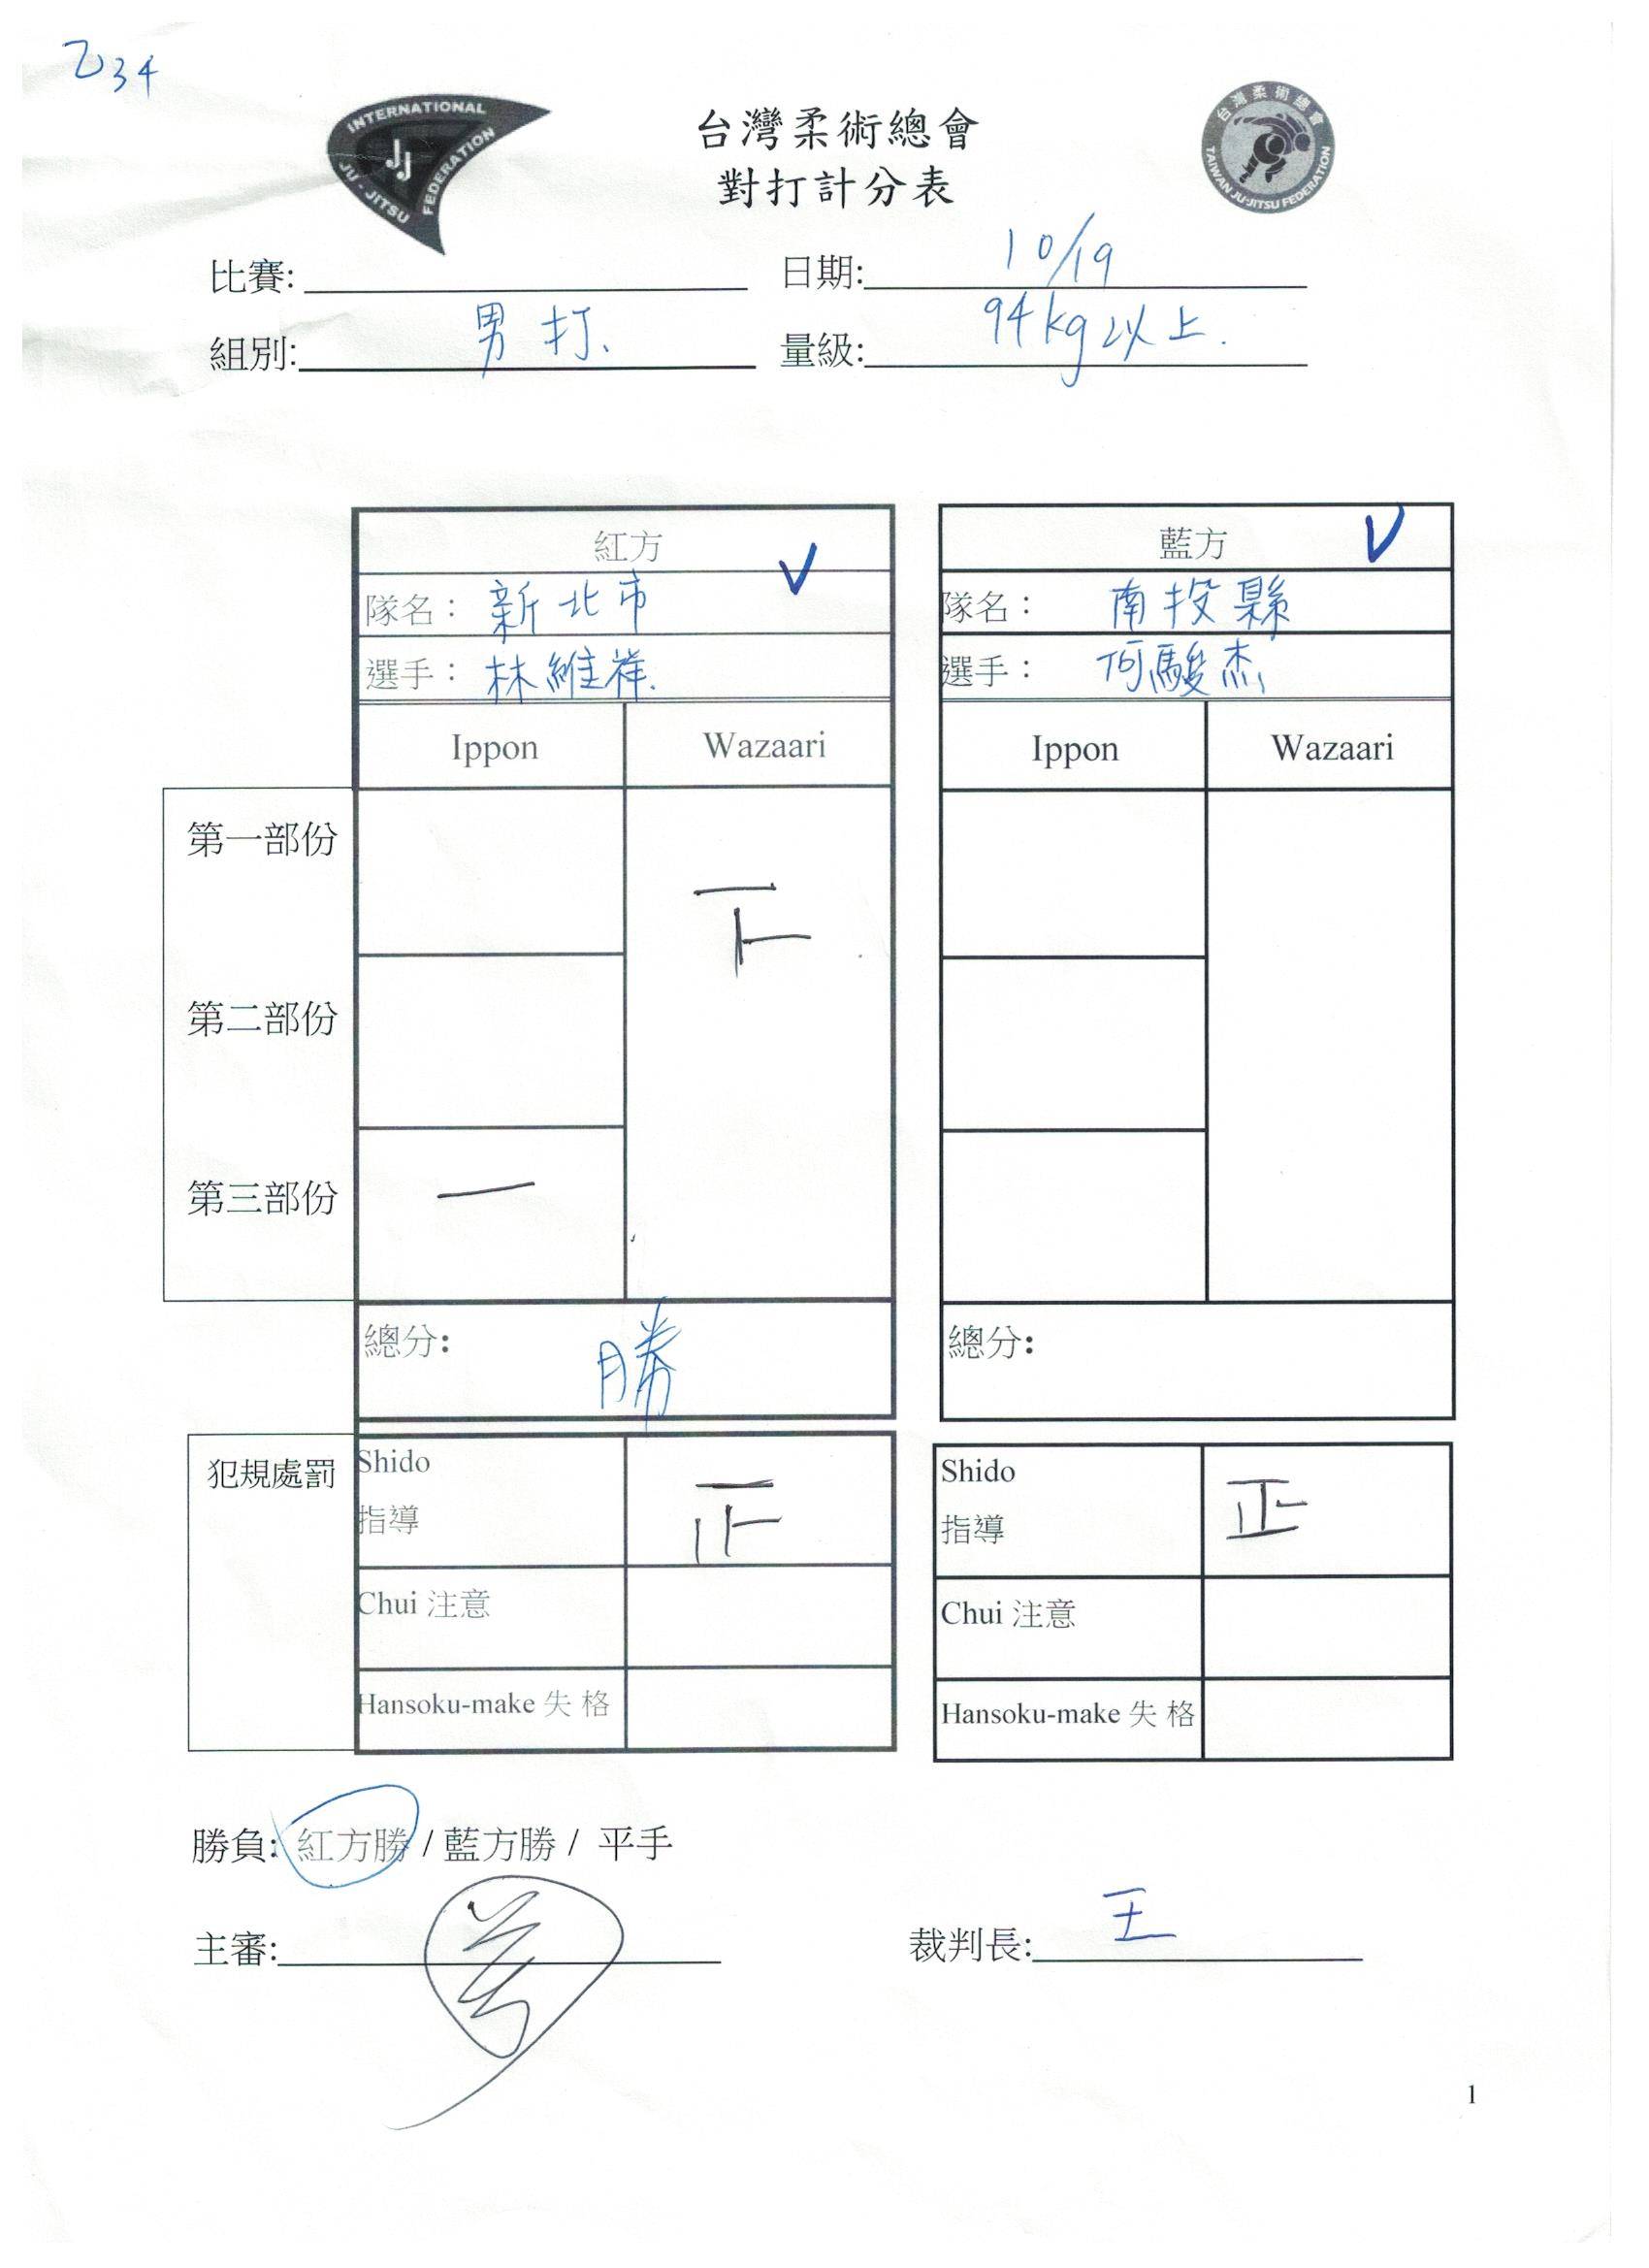 乙34
INTERNATIONAL
JJ
JU-JITSU FEDERATION
台灣柔術總會
TAIWAN JU-JITSU FEDERATION
台灣柔術總會
對打計分表
比賽: 日期: 10/19
組別: 男打. 量級: 94kg以上.
紅方 ✓ 藍方 ✓
隊名： 新北市 隊名： 南投縣
選手： 林維祥. 選手： 何駿杰
Ippon Wazaari Ippon Wazaari
第一部份
下
第二部份
第三部份 一
總分: 勝 總分:
犯規處罰 Shido Shido
指導 指導 正
Chui 注意 Chui 注意
Hansoku-make 失 格 Hansoku-make 失 格
勝負: 紅方勝 / 藍方勝 / 平手
主審: 裁判長: 王
1